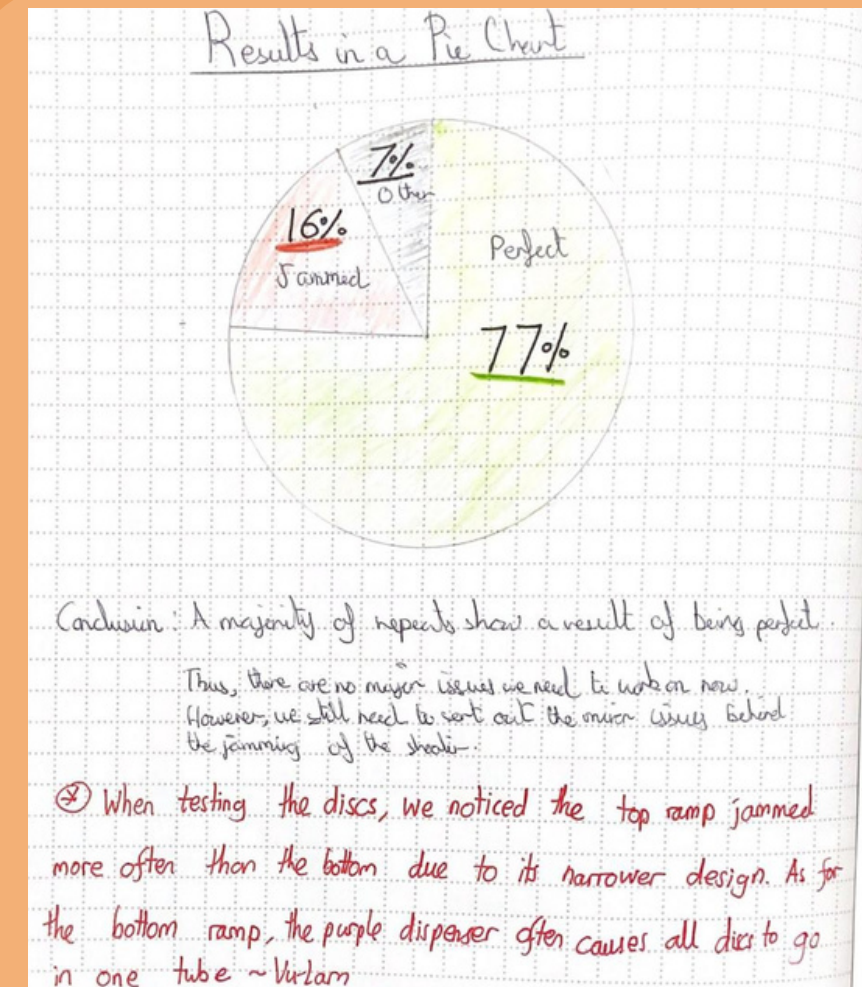 Results in a Pie Chart
7%
Other
16%
Jammed
Perfect
77%
Conclusion: A majority of repeats show a result of being perfect.
Thus, there are no major issues we need to work on now.
However, we still need to sort out the minor issues behind
the jamming of the shooter.
* When testing the discs, we noticed the top ramp jammed
more often than the bottom due to its narrower design. As for
the bottom ramp, the purple dispenser often causes all discs to go
in one tube ~ Vu-Lam